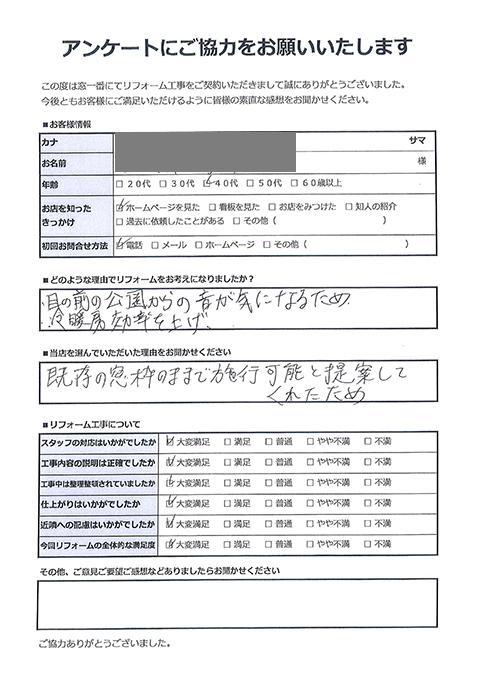 アンケートにご協力をお願いいたします
この度は窓一番にてリフォーム工事をご契約いただきまして誠にありがとうございました。
今後ともお客様にご満足いただけるように皆様の素直な感想をお聞かせください。
■お客様情報
カナ サマ
お名前 様
年齢 □20代 □30代 ☑40代 □50代 □60歳以上
お店を知った ☑ホームページを見た □看板を見た □お店をみつけた □知人の紹介
きっかけ □過去に依頼したことがある □その他( )
初回お問合せ方法 ☑電話 □メール □ホームページ □その他( )
■どのような理由でリフォームをお考えになりましたか?
・目の前の公園からの音が気になるため
・冷暖房効率を上げ、
■当店を選んでいただいた理由をお聞かせください
既存の窓枠のままで施行可能と提案して
くれたため
■リフォーム工事について
スタッフの対応はいかがでしたか ☑大変満足 □満足 □普通 □やや不満 □不満
工事内容の説明は正確でしたか ☑大変満足 □満足 □普通 □やや不満 □不満
工事中は整理整頓されていましたか ☑大変満足 □満足 □普通 □やや不満 □不満
仕上がりはいかがでしたか ☑大変満足 □満足 □普通 □やや不満 □不満
近隣への配慮はいかがでしたか ☑大変満足 □満足 □普通 □やや不満 □不満
今回リフォームの全体的な満足度 ☑大変満足 □満足 □普通 □やや不満 □不満
その他、ご意見ご要望ご感想などありましたらお聞かせください
ご協力ありがとうございました。